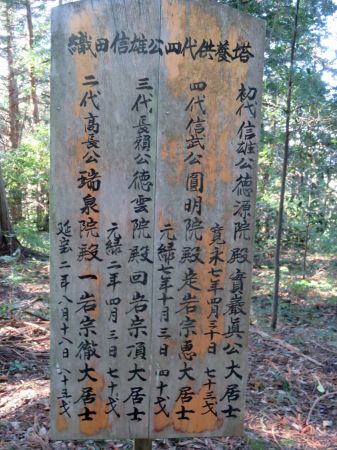 織田信雄公四代供養塔
初代信雄公徳源院殿實巖眞公大居士
寛永七年四月三十日 七十三戈
四代信武公圓明院殿走岩宗恵大居士
元緑七年十月三日 四十戈
三代長頼公徳雲院殿回岩宗頂大居士
元緑二年四月三日 七十戈
二代高長公瑞泉院殿一岩宗徹大居士
延宝二年八月十八日 八十五戈